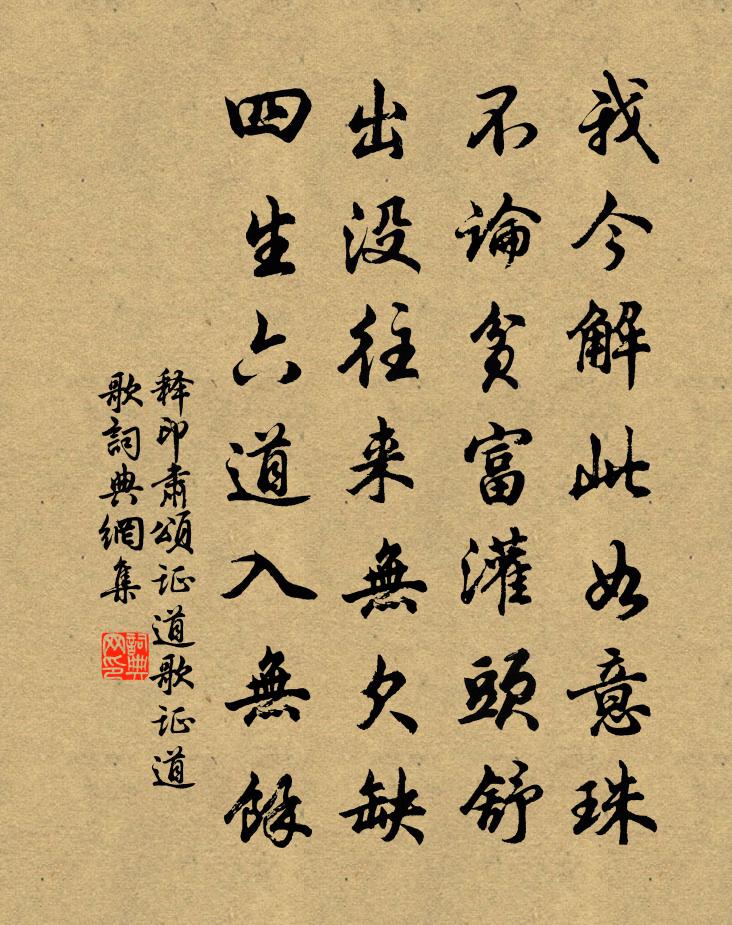 我今解此如意珠
不論貧富灌頭舒
出没往来無欠缺
四生六道入無餘
释印肃頌证道歌证道
歌詞典網集
詞典网印